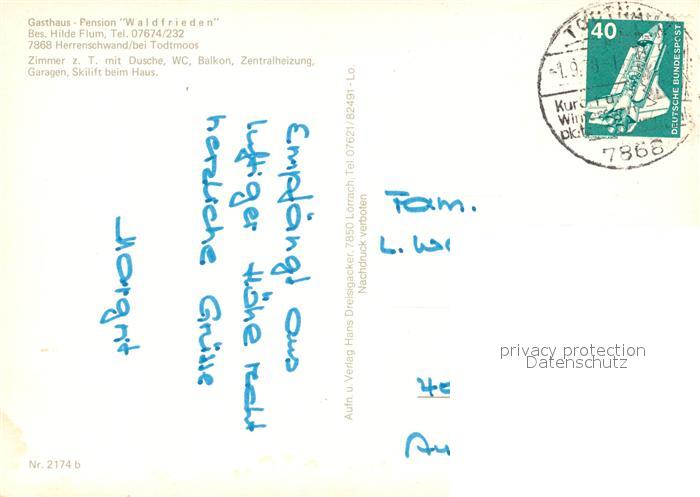 Gasthaus - Pension "Waldfrieden"
Bes. Hilde Flum, Tel. 07674/232
7868 Herrenschwand/bei Todtmoos
Zimmer z. T. mit Dusche, WC, Balkon, Zentralheizung,
Garagen, Skilift beim Haus.
Empfangt aus
luftiger Höhe recht
herzliche Grüsse
Margrit
Nr. 2174 b
Aufn. u. Verlag Hans Dreisigacker, 7850 Lörrach, Tel. 07621/82491 - Lo.
Nachdruck verboten
40
DEUTSCHE BUNDESPOST
7868
Fam.
L.
privacy protection
Datenschutz